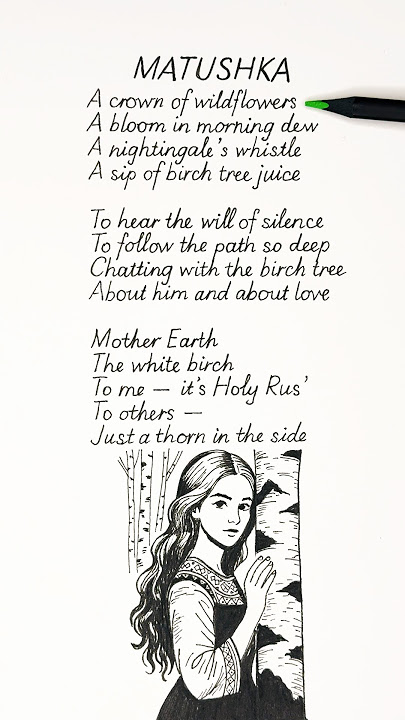 MATUSHKA
A crown of wildflowers
A bloom in morning dew
A nightingale's whistle
A sip of birch tree juice
To hear the will of silence
To follow the path so deep
Chatting with the birch tree
About him and about love
Mother Earth
The white birch
To me — it's Holy Rus'
To others —
Just a thorn in the side